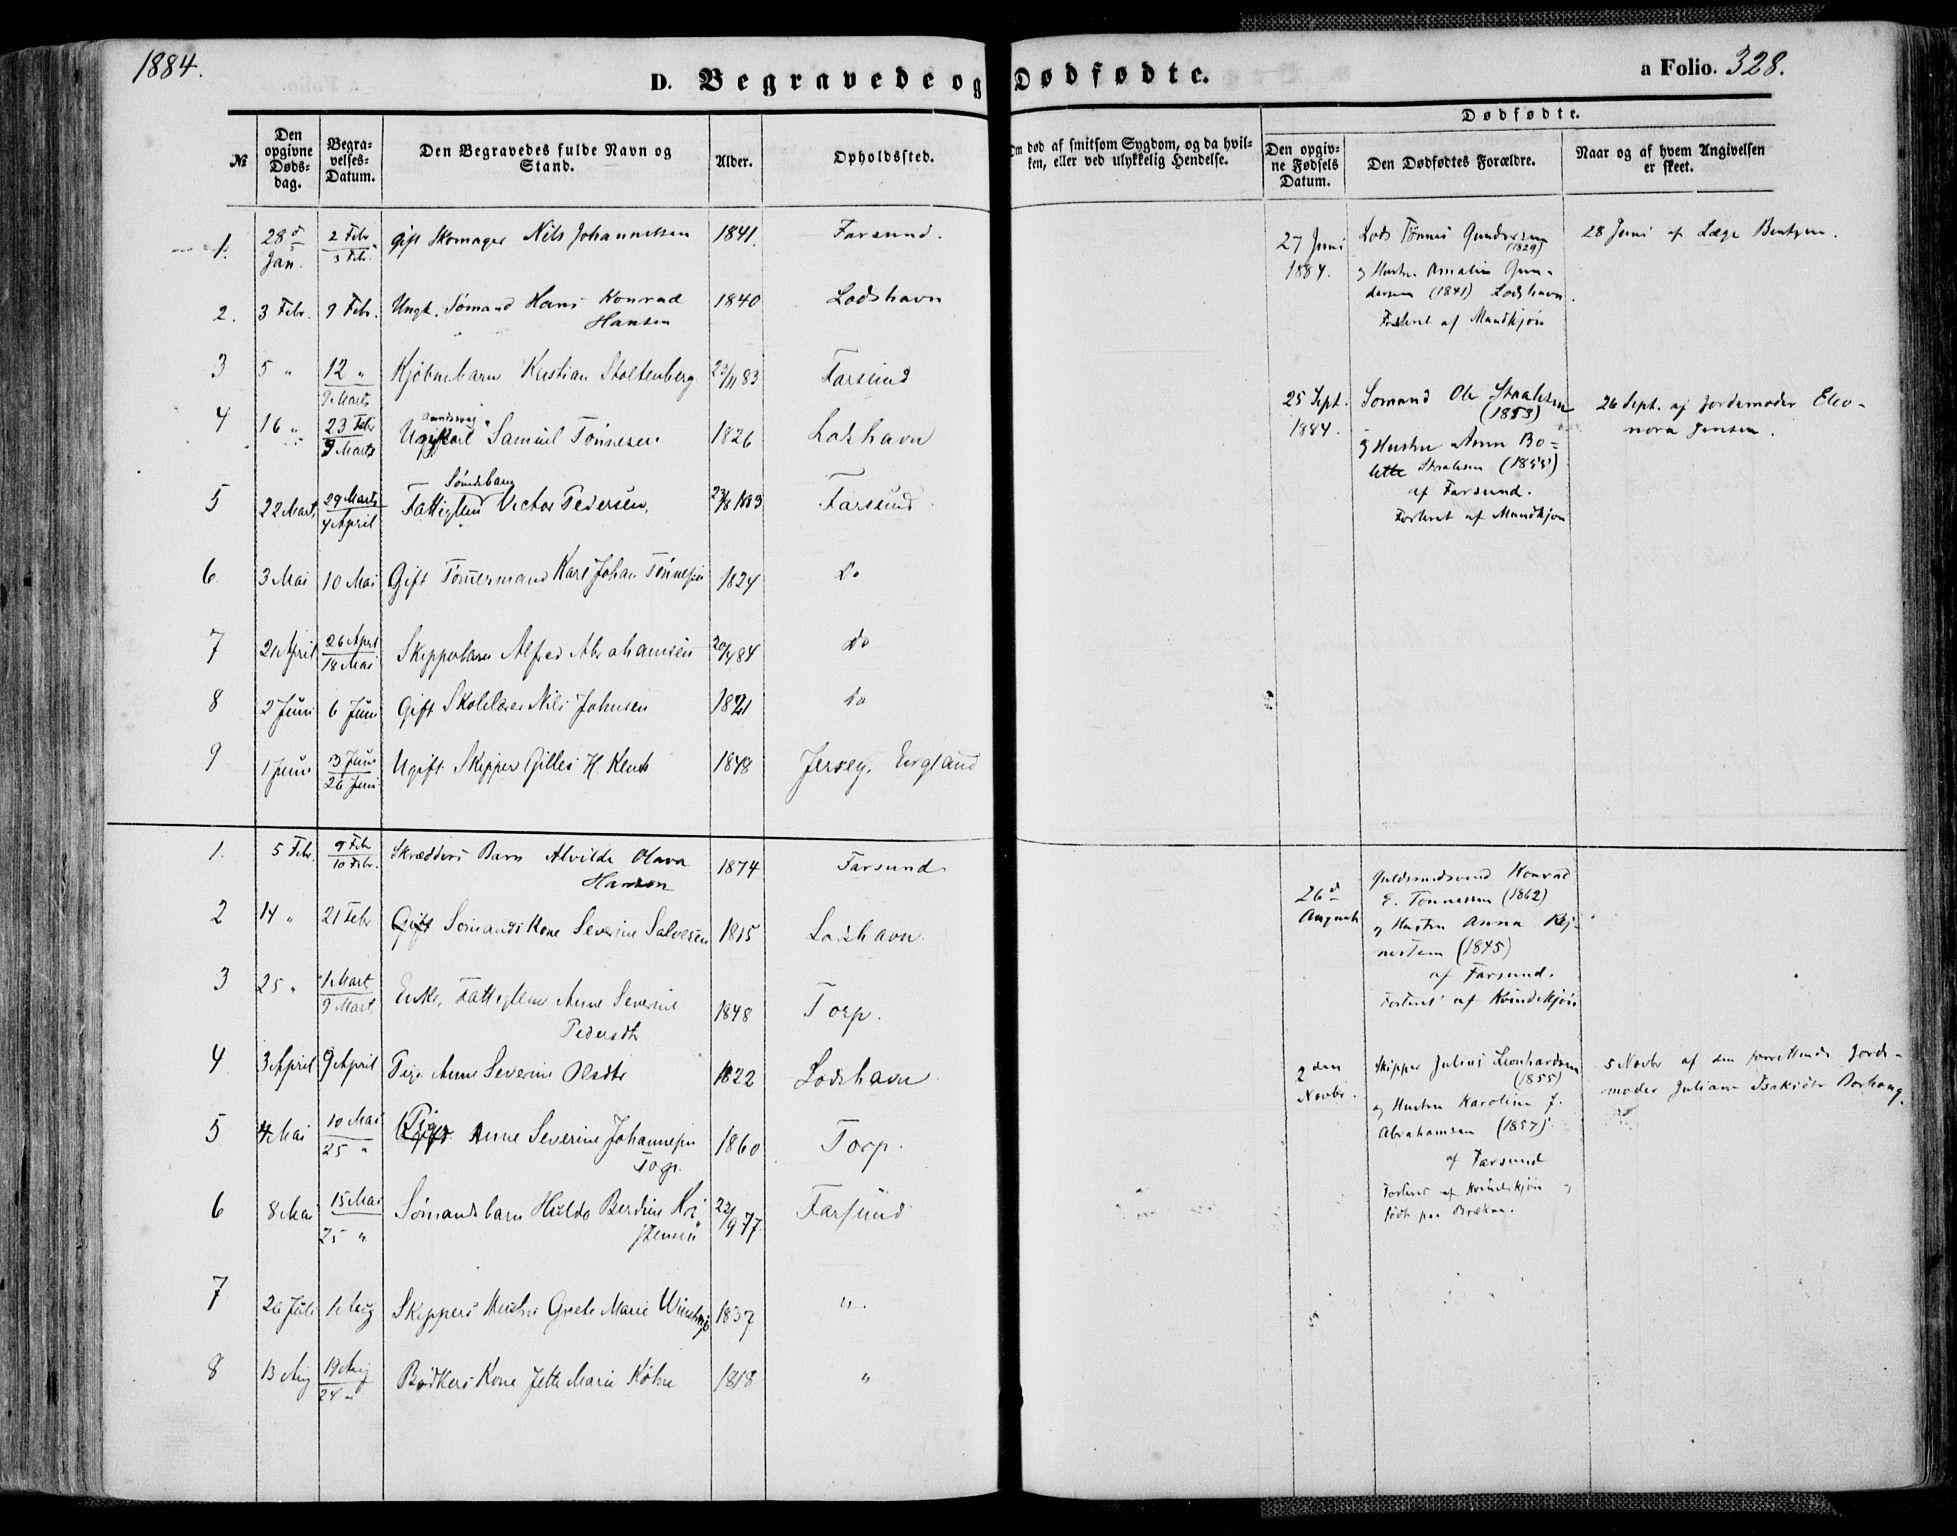 1884.
D. Begravede og Dødfødte.
a Folio. 328.
№
Den opgivne Dødsdag.
Begravelses-Datum.
Den Begravedes fulde Navn og Stand.
Alder.
Opholdssted.
Om død af smitsom Sygdom, og da hvilken, eller ved ulykkelig Hendelse.
Dødfødte.
Den opgivne Fødsels Datum.
Den Dødfødtes Forældre.
Naar og af hvem Angivelsen er skeet.
1. 28 Jan. 2 Febr 3 Feb. gift Skomager Nils Johannesen 1841. Farsund.
2. 3 Febr. 9 Febr. Ungk. Sømand Hans Konrad
Hansen 1840 Lodshavn
3 5 " 12 " 9 Marts Kjøbmbarn Kristian Stoltenberg 23/11 83 Farsund
4 16 " 23 Febr 9 Marts Samuel Tønnesen 1826 Loshavn
5 22 Mart. 29 Marts 4 April Sømdsbarn
Fattiglem Victor Pedersen. 23/8 1883 Farsund.
6 3 Mai 10 Mai Gift Tømermand Karl Johan Tønnesen 1824 do
7 21 April 26 April 18 Mai Skipperbarn Alfred Abrahamsen 20/4 84 do
8 2 Juni 6 Juni Gift Skolelærer Nils Johnsen 1821 do
9 1 Juni 13 Juni 26 Juni Ugift Skipper Gilles H. 1848 Jersey, England
1. 5 Febr. 9 Feb 10 Febr. Skrædders Barn Alvilde Olava
Hansen 1874 Farsund
2 14 " 21 Febr Gift Sømands Kone Severine Salvesen 1815 Loshavn.
3 25 " 1 Mart 9 Mart Enke, Fattiglem Anne Severine
Pedersdtr 1848 Torp.
4 3 April 9 April Pige Anne Severine Olsdtr 1822 Loshavn
5 4 Mai 10 Mai 25 " Pige Anne Severine Johannesen
Torp. 1860 Torp.
6 8 Mai 15 Mai 25 " Sømandsbarn Hulda Berdine Kri-
stensen 22/9 77. Farsund
7 26 Juli 1 Aug Skippers Hustru Grete Marie 1837 ".
8 13 Aug 19 Aug 24 " Bødkers Kone Jette Marie Køhn 1818 "
27 Juni
1884.
Lods Tønnes Gundersen
(1829)
og Hustru Amalie Gun-
dersen (1841) Lodshavn.
Fosteret af Mandkjøn
28 Juni af Læge Bentzen.
25 Sept.
1884.
Sømand Ole Straalesen
(1853)
og Hustru Anne Bo-
lette Straalesen (1855)
af Farsund.
Fosteret af Mandkjøn
26 Sept. af Jordemoder Eleo-
nora Jensen.
26d
August
Guldsmedsvend Konrad
E. Tønnessen (1862)
og Hustru Anna
(1845)
af Farsund.
Fosteret af Kvindekjøn
2den
Novbr.
Skipper Julius Leonhardsen
(1855)
og Hustru Karoline J.
Abrahamsen (1857)
af Farsund
Fosteret af Kvindekjøn og
født paa
5 Novbr af den Jorde-
moder Juliane